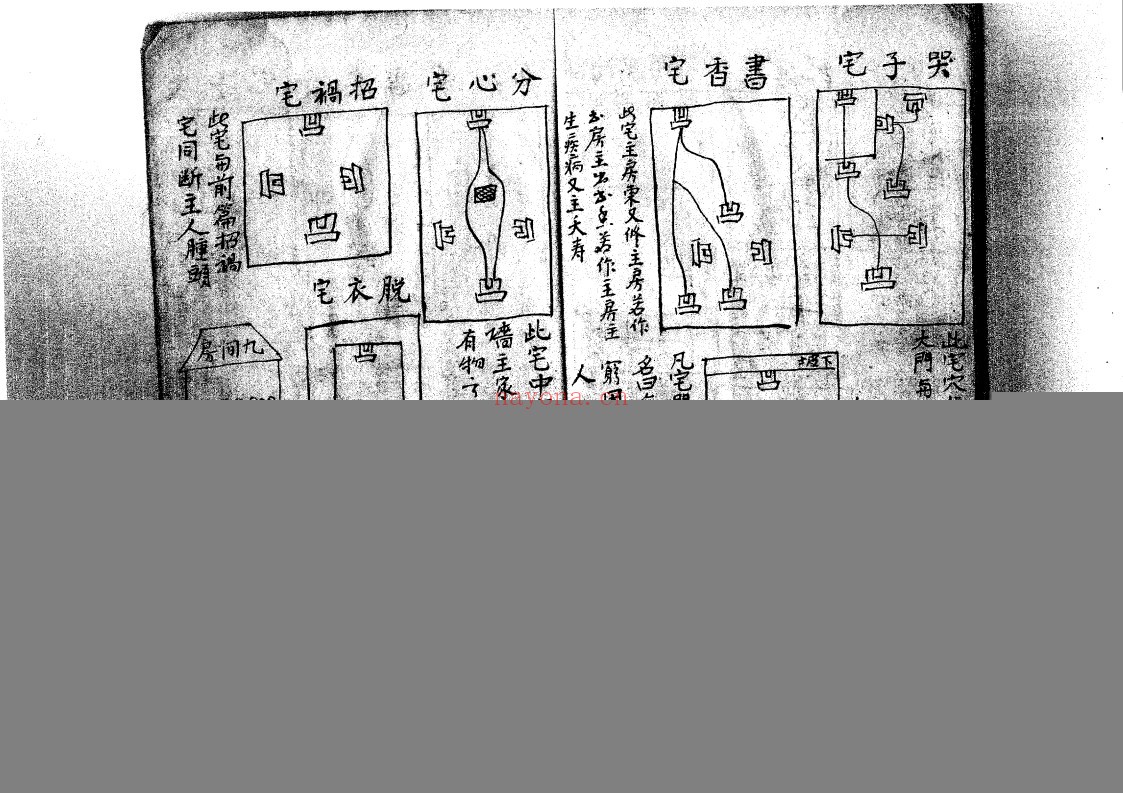 哭子宅
此宅穴
大門每
書香宅
此宅主房東又修主房若作
房主出
作主房主
生疾病又主夭寿
下屋
凡宅
窮困
人
分心宅
此宅中
墻主家
有物了
招禍宅
此宅与前篇招禍
宅同断主人腫頭
脱衣宅
九间房
nayona.cn